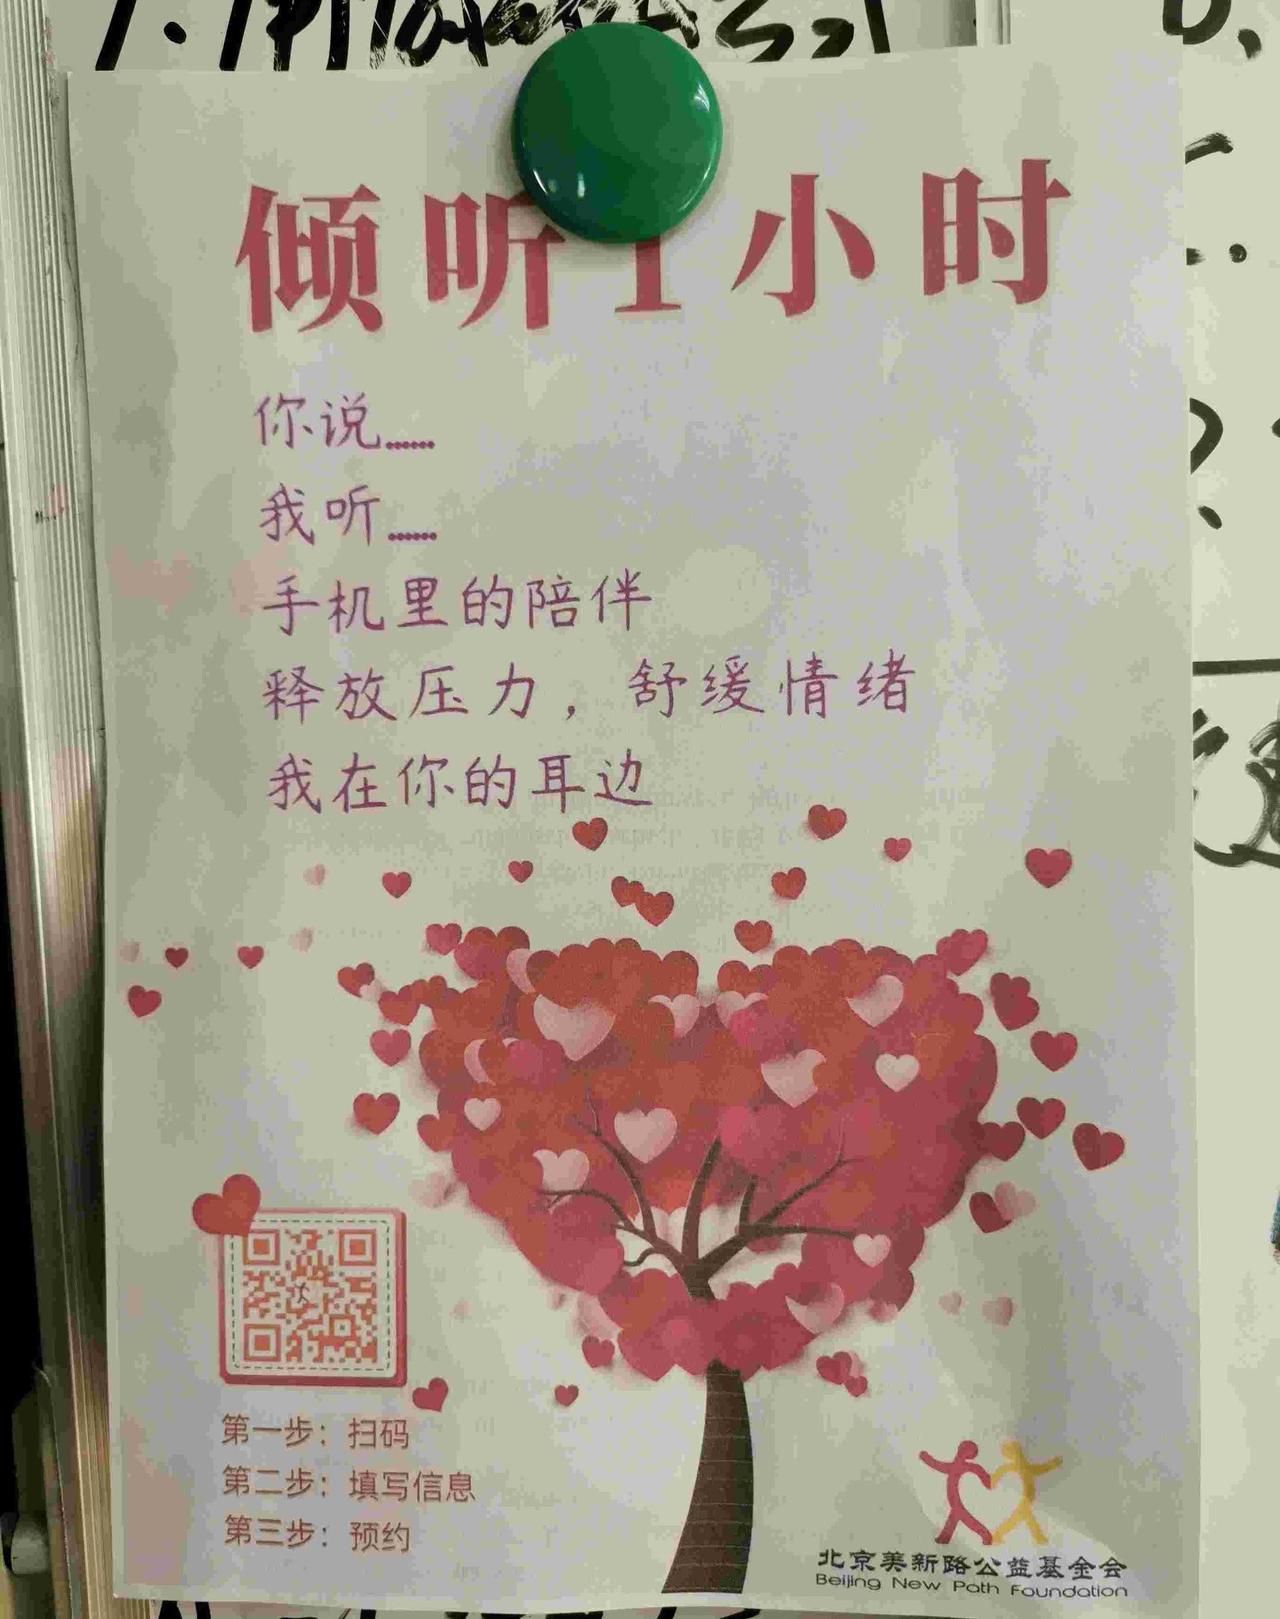 倾听1小时
你说……
我听……
手机里的陪伴
释放压力，舒缓情绪
我在你的耳边
第一步：扫码
第二步：填写信息
第三步：预约
北京美新路公益基金会
Beijing New Path Foundation